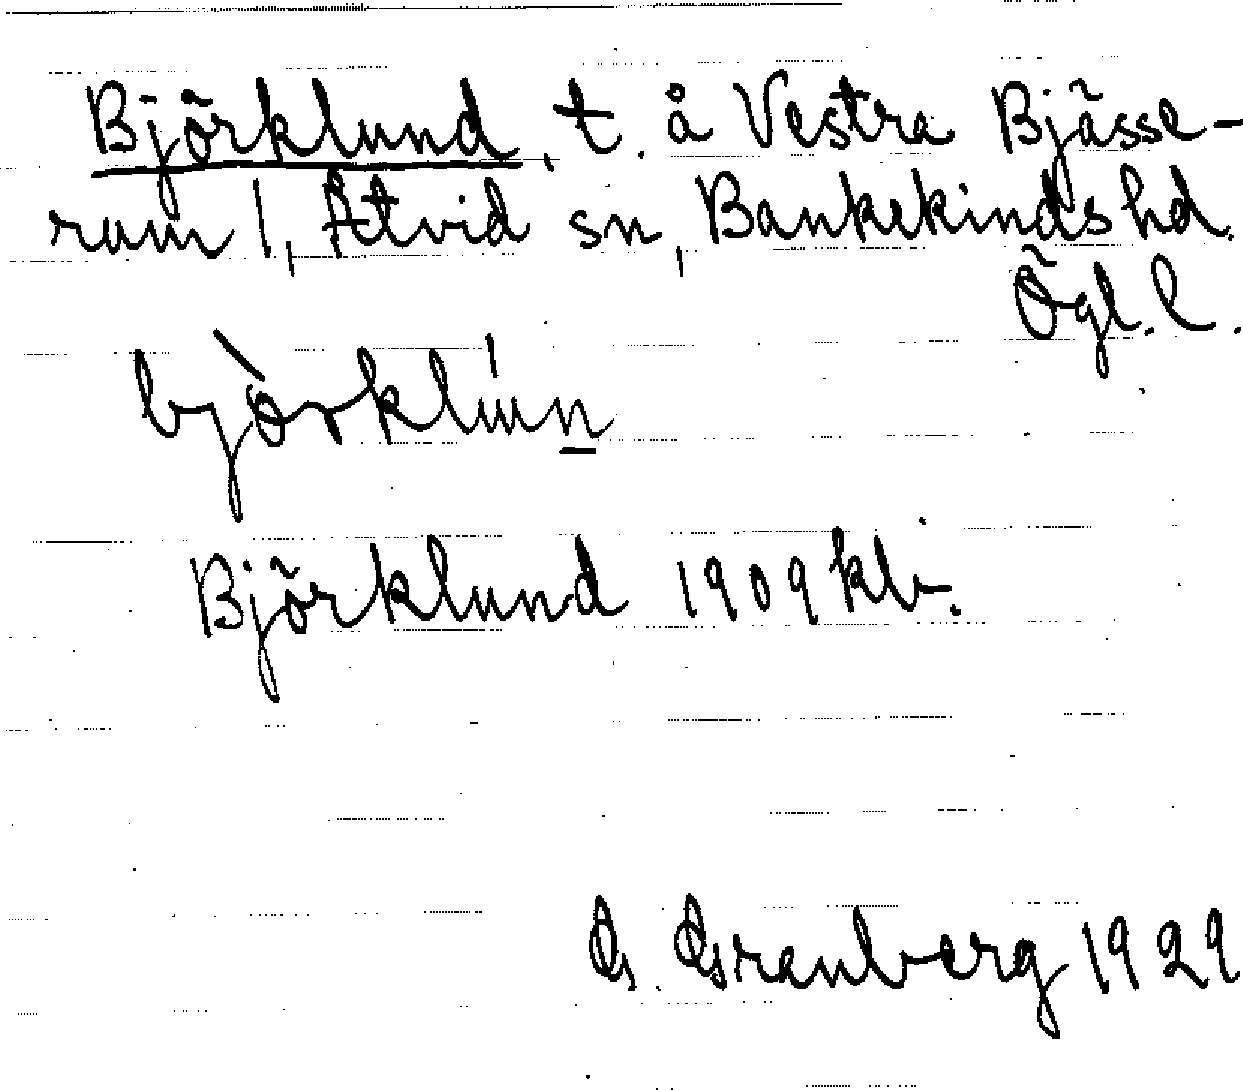 Björklund, t. å Vestra Bjässe-
ram 1, Åtvid sn, Bankekinds hd.
Ögl. l.
bjòrklún
Björklund 1909 kb.
G. Granberg 1929